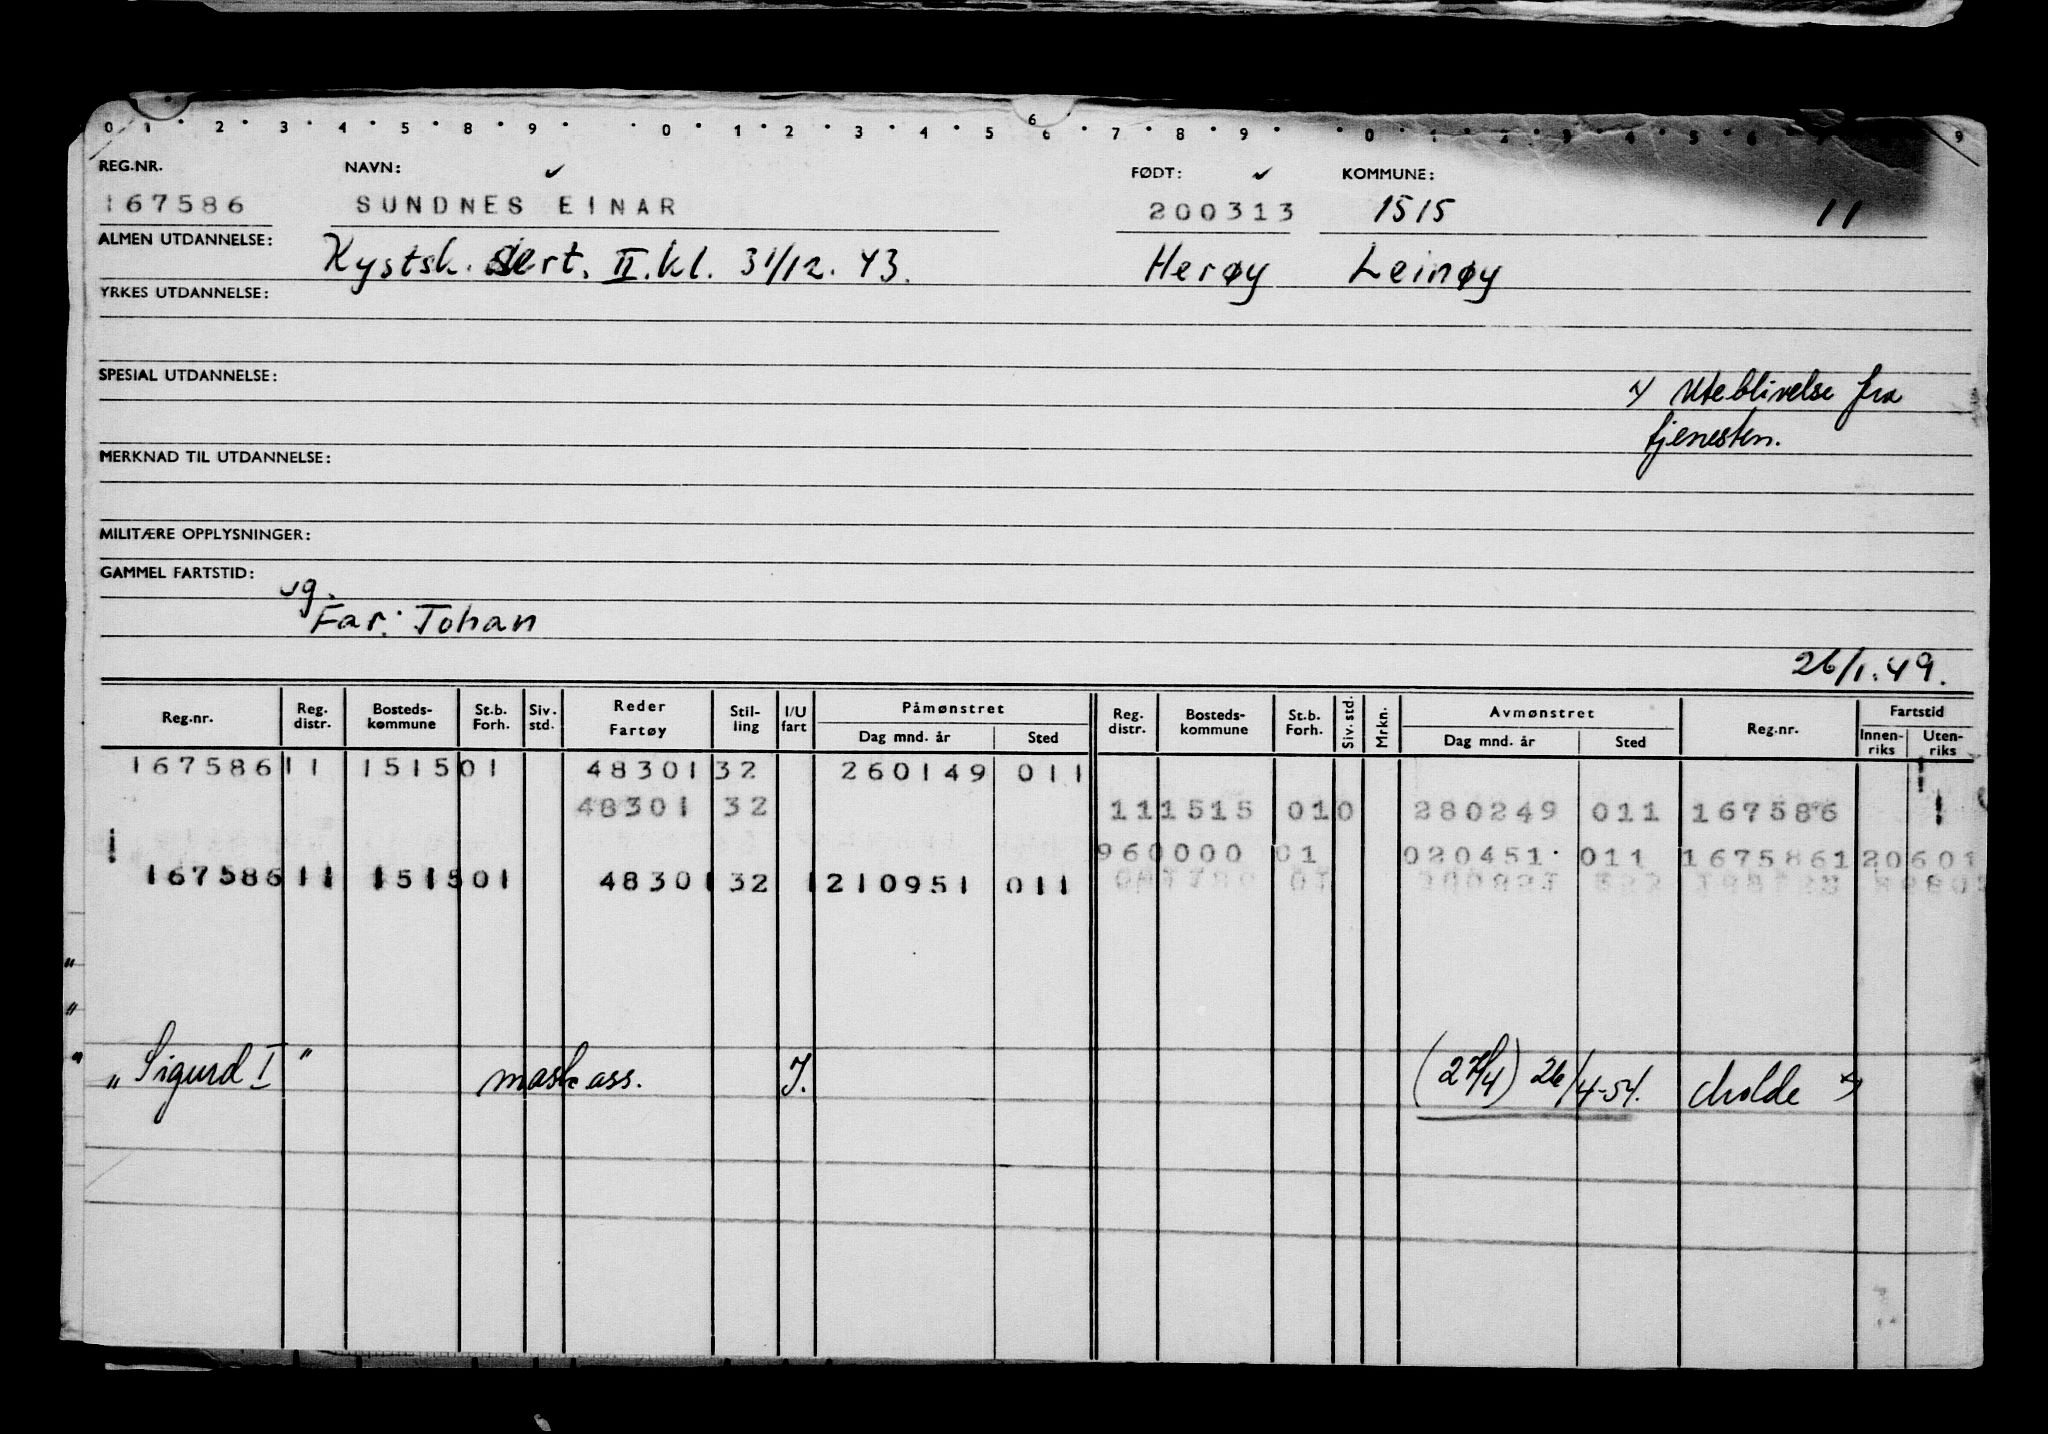 0 1 2 3 4 5 8 9 0 1 2 3 4 5 6 6 7 8 9 0 1 2 3 4 5 6 9
REG.NR. NAVN: FØDT: KOMMUNE:
167586 SUNDNES EINAR 200313 1515 11
ALMEN UTDANNELSE: Kystsk. sert. II. kl. 31/12. 43. Herøy Leinøy
YRKES UTDANNELSE:
SPESIAL UTDANNELSE:
Uteblivelse fra
tjenesten.
MERKNAD TIL UTDANNELSE:
MILITÆRE OPPLYSNINGER:
GAMMEL FARTSTID:
ug.
Far: Johan
26/1.49.
Reg.nr. Reg. distr. Bosteds- kommune St.b. Forh. Siv. std. Reder Fartøy Stil- ling I/U fart Påmønstret Dag mnd. år Sted Reg. distr. Bosteds- kommune St.b. Forh. Siv. std. Mrkn. Avmønstret Dag mnd. år Sted Reg.nr. Fartstid Innen- riks Uten- riks
167586 11 1515 01 48301 32 260149 011
48301 32 11 1515 01 0 280249 011 167586
96 0000 01 020451 011 167586 1 20601
167586 11 1515 01 48301 32 1 210951 011
"Sigurd I" mask ass. I. (27/4) 26/4-54. Molde